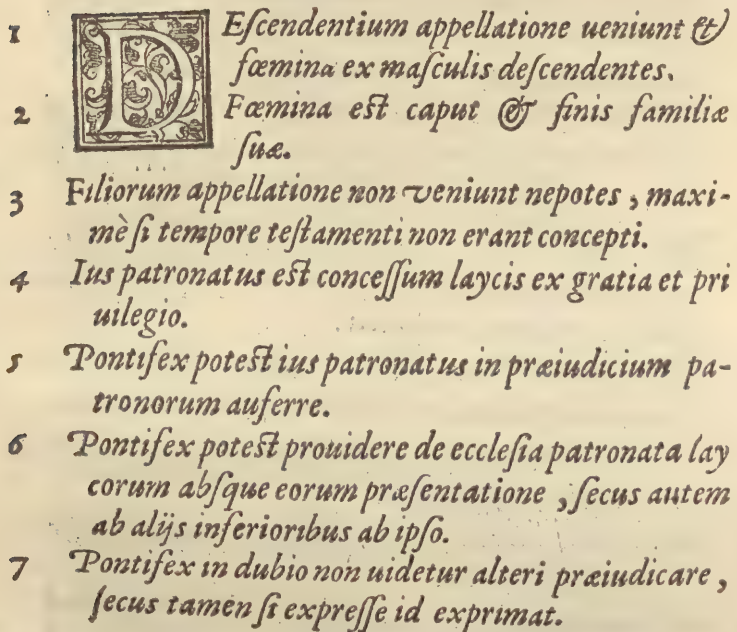 1 DEſcendentium appellatione ueniunt &
fœmina ex maſculis deſcendentes.
2 Fœmina eſt caput & finis familiæ
ſuæ.
3 Filiorum appellatione non veniunt nepotes, maxi-
mè ſi tempore teſtamenti non erant concepti.
4 Ius patronatus eſt conceſſum laycis ex gratia et pri
uilegio.
5 Pontifex poteſt ius patronatus in præiudicium pa-
tronorum auferre.
6 Pontifex poteſt prouidere de eccleſia patronata lay
corum abſque eorum præſentatione, ſecus autem
ab alijs inferioribus ab ipſo.
7 Pontifex in dubio non uidetur alteri præiudicare,
ſecus tamen ſi expreſſe id exprimat.